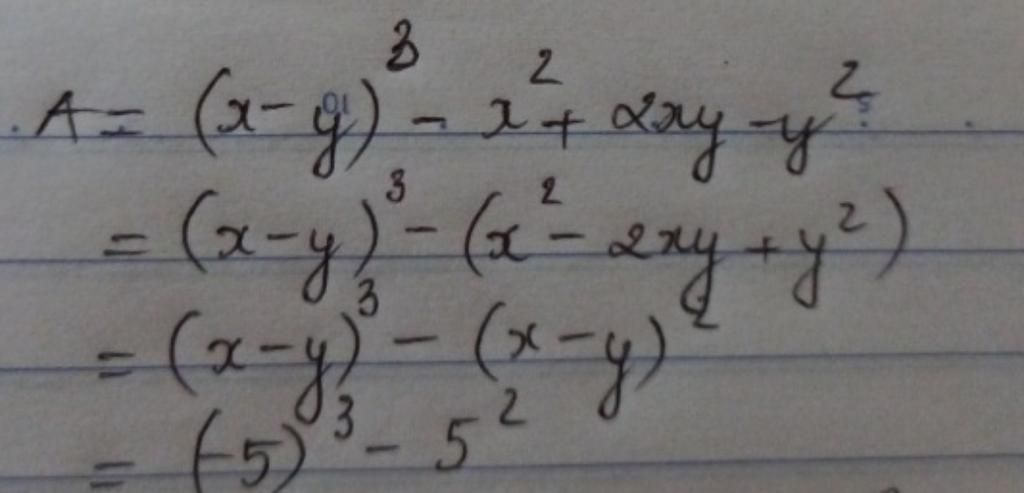 A = (x-y)³ - x² + 2xy - y²
= (x-y)³ - (x² - 2xy + y²)
= (x-y)³ - (x-y)²
= (-5)³ - 5²